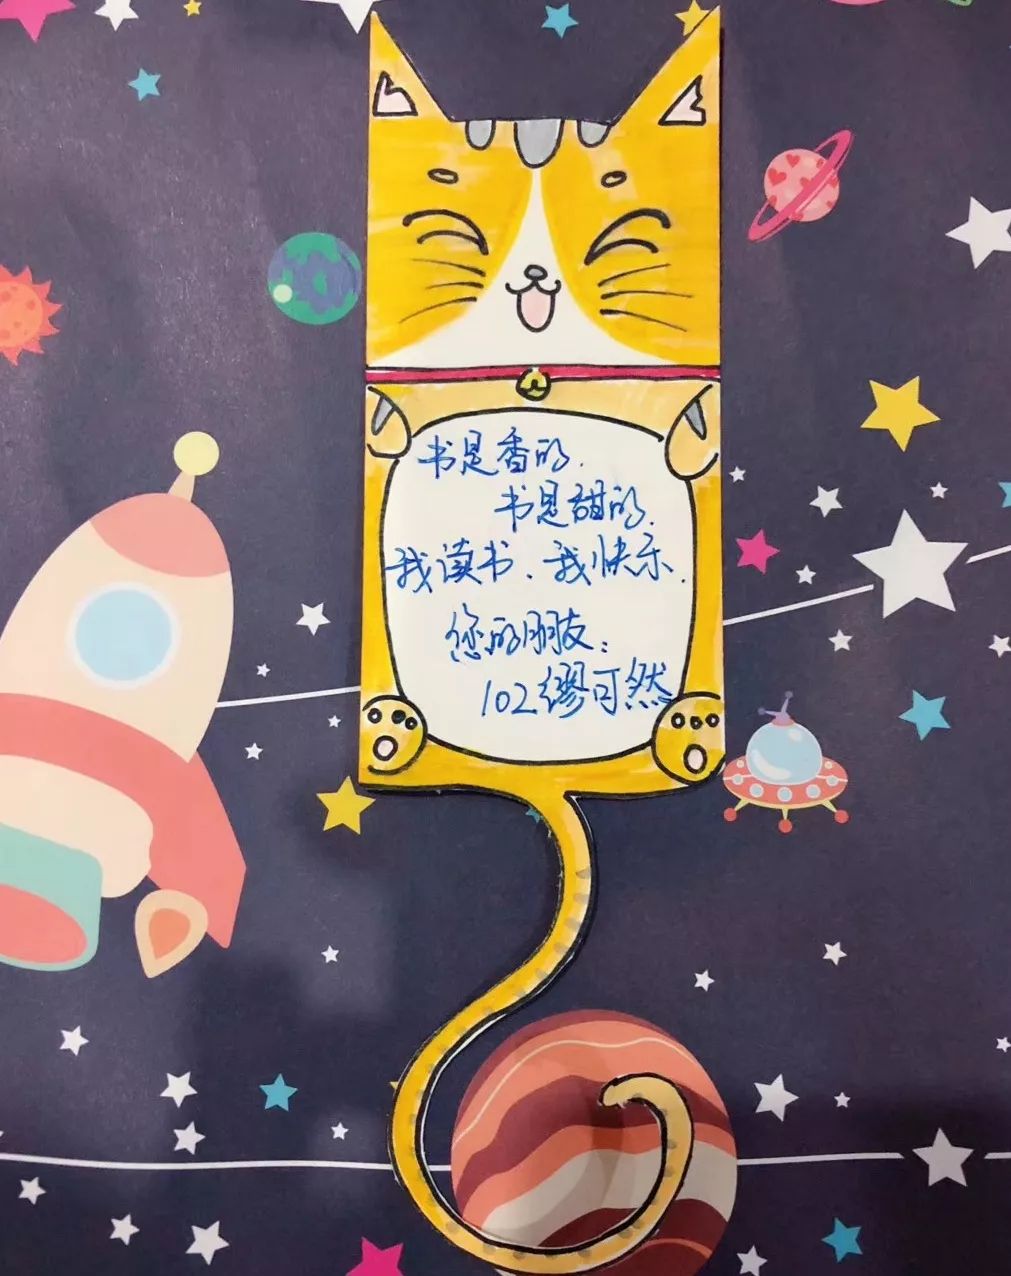 书是香的.
书是甜的.
我读书、我快乐.
您的朋友：
102缪可然